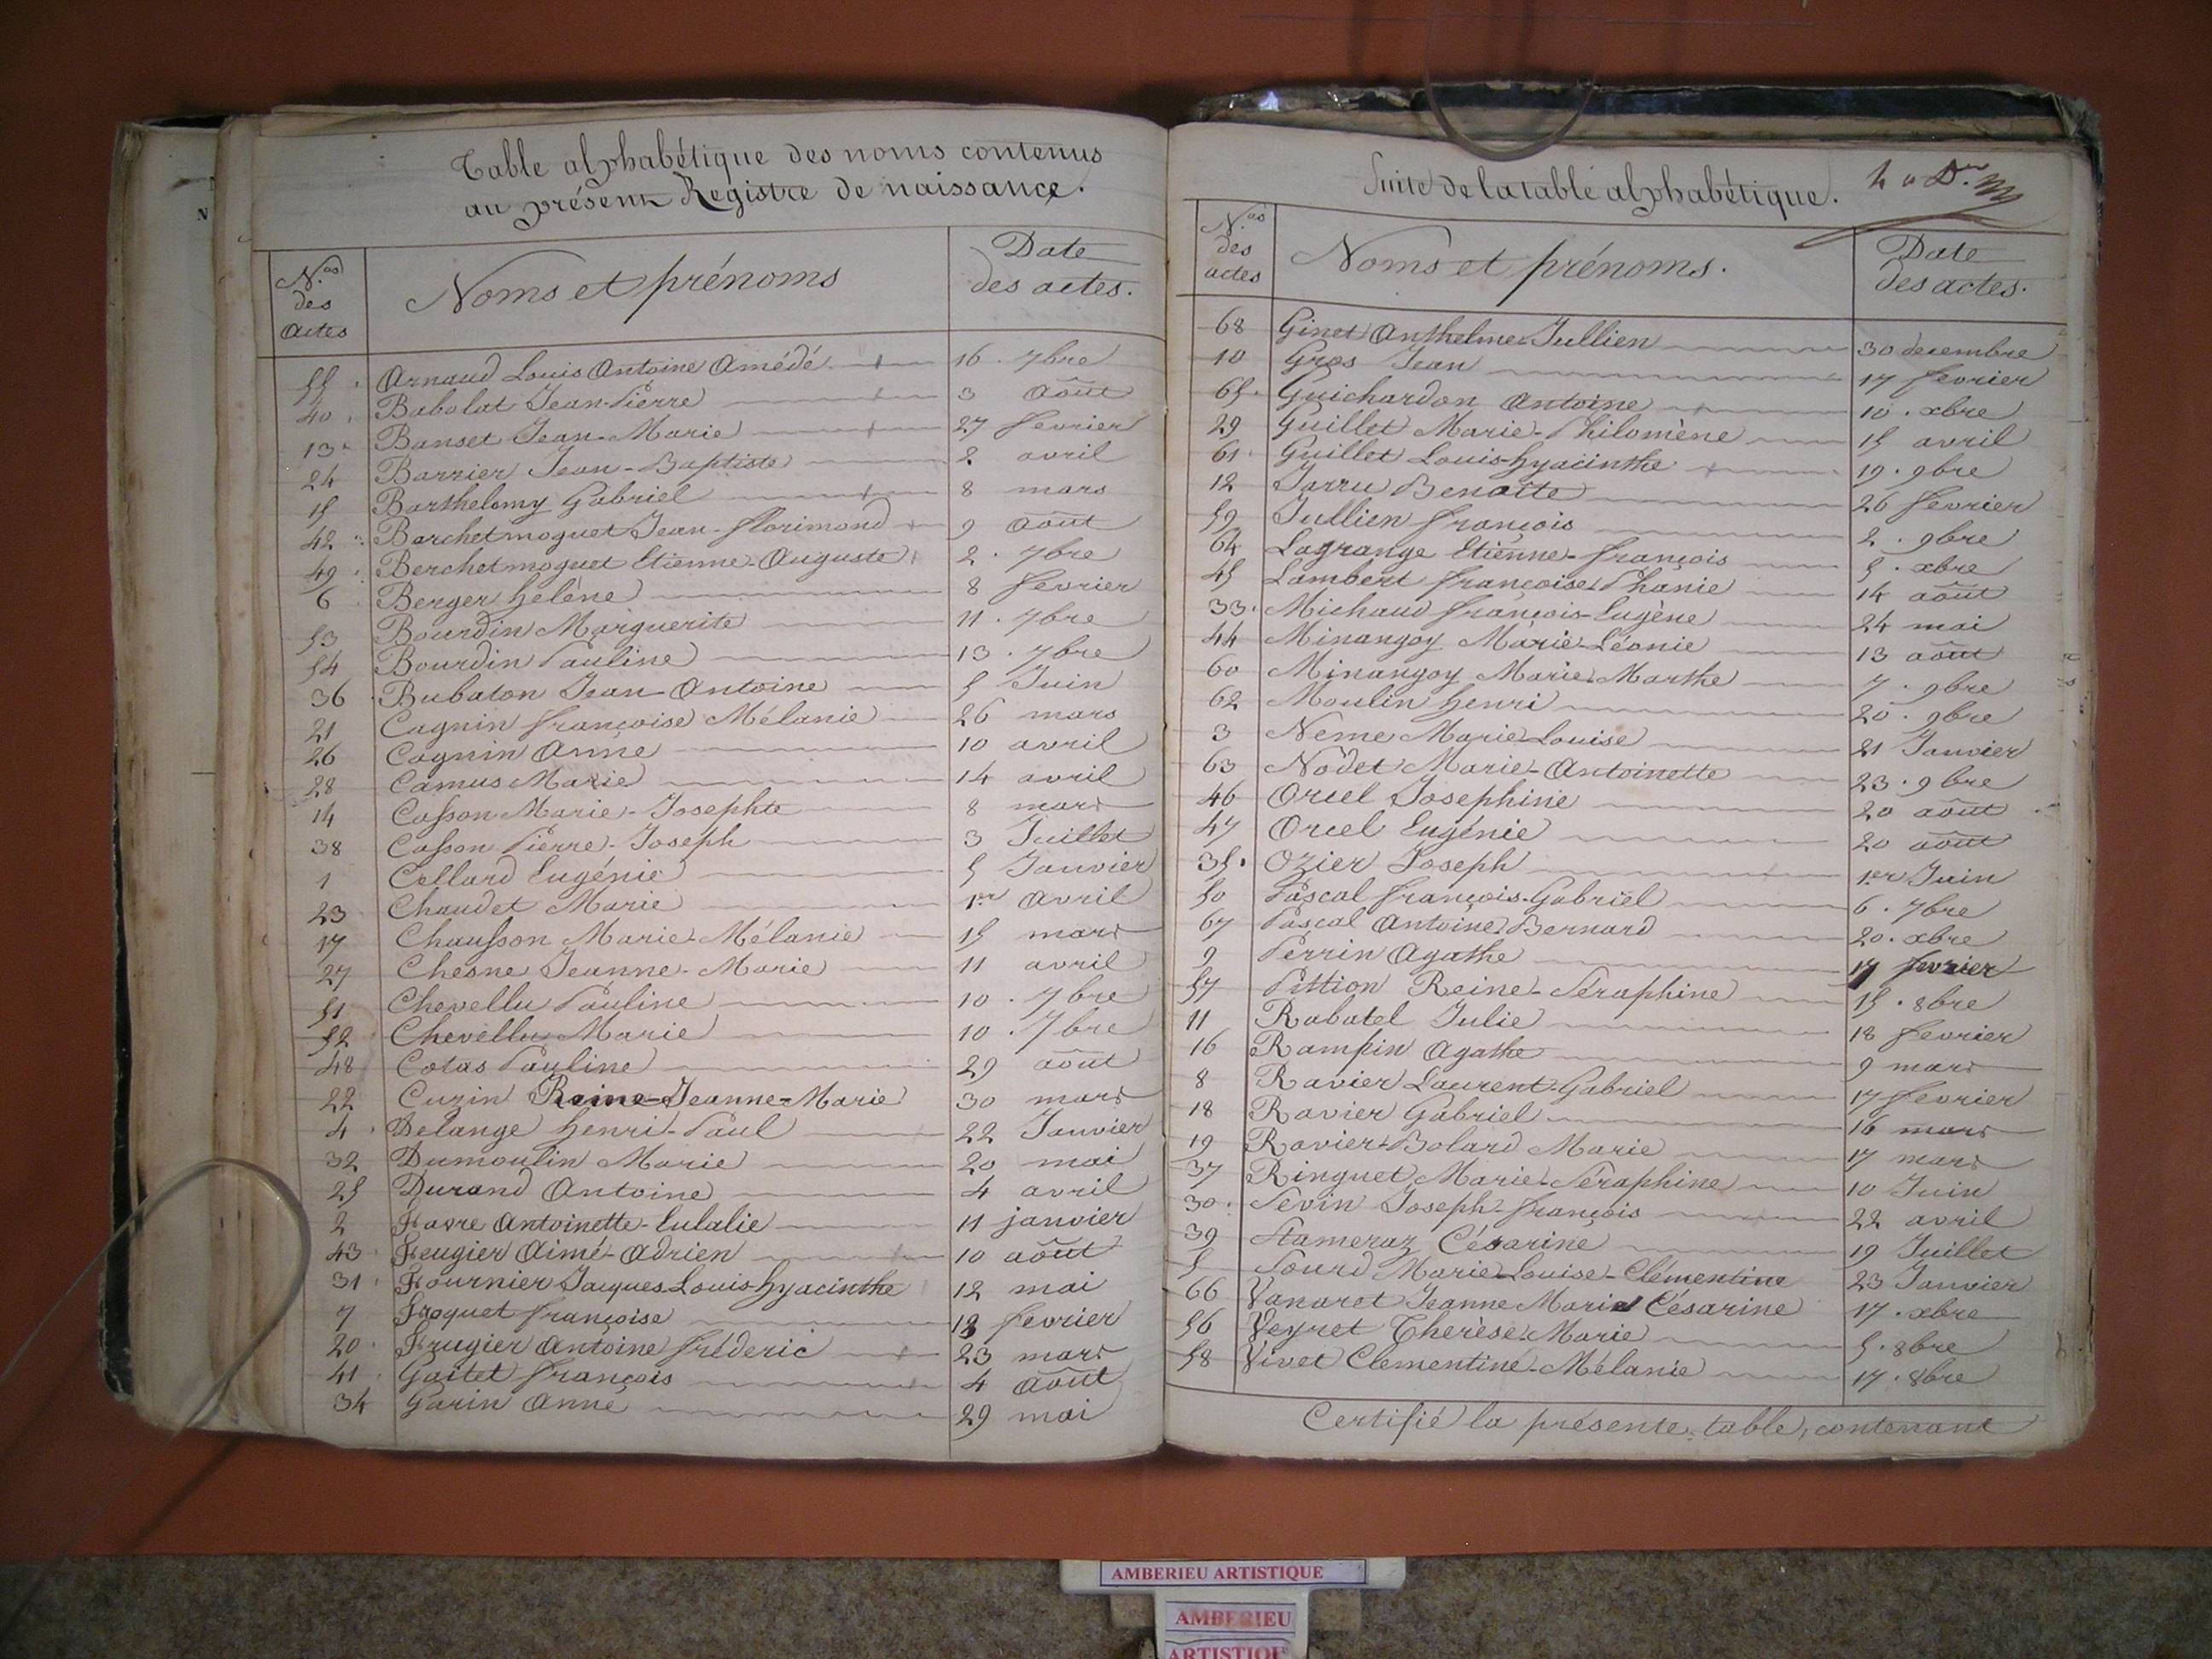 Table alphabétique des noms contenus
au présent Registre de naissance.
N.os des Actes Noms et prénoms Date des actes.
55 Arnaud Louis Antoine Amédé 16 . 7bre
40 Babolat Jean-Pierre 3 août
13 Banset Jean-Marie 27 février
24 Barrier Jean-Baptiste 2 avril
15 Barthelemy Gabriel 8 mars
42 Berchetmoguet Jean-Florimond 9 août
49 Berchetmoguet Etienne-Auguste 2 . 7bre
6 Berger hélène 8 février
53 Bourdin Marguerite 11 . 7bre
54 Bourdin Pauline 13 . 7bre
36 Bubaton Jean-Antoine 5 Juin
21 Cagnin françoise Mélanie 26 mars
26 Cagnin Anne 10 avril
28 Camus Marie 14 avril
14 Casson Marie-Josephte 8 mars
38 Casson Pierre-Joseph 3 Juillet
1 Cellard Eugénie 5 Janvier
23 Chaudet Marie 1er avril
17 Chausson Marie-Mélanie 15 mars
27 Chesne Jeanne-Marie 11 avril
51 Chevellu Pauline 10 . 7bre
52 Chevellu Marie 10 . 7bre
48 Cotas Pauline 29 août
22 Cuzin Reine-Jeanne-Marie 30 mars
4 Delange henri-Paul 22 Janvier
32 Dumoulin Marie 20 mai
25 Durand Antoine 4 avril
2 Favre Antoinette-Eulalie 11 janvier
43 Feugier Aimé-Adrien 10 août
31 Fournier Jacques-Louis-hyacinthe 12 mai
7 Froquet françoise février
20 Frugier Antoine fréderic 23 mars
41 Gaitet françois 4 août
34 Garin Anne 29 mai
Suite de la table alphabétique.
N.os des actes Noms et prénoms. Date des actes.
68 Ginet Anthelme-Jullien 30 decembre
10 Gros Jean 17 fevrier
65 Guichardon Antoine 10 . xbre
29 Guillet Marie-Philomène 15 avril
61 Guillet Louis-hyacinthe 19 . 9bre
12 Jarru Benoîte 26 février
59 Jullien françois 2 . 9bre
64 Lagrange Etienne-françois 5 . xbre
45 Lambert françoise Phanie 14 août
33 Michaud françois-Eugène 24 mai
44 Minangoy Marie-Léonie 13 août
60 Minangoy Marie-Marthe 7 . 9bre
62 Moulin henri 20 . 9bre
3 Neme Marie-Louise 21 Janvier
63 Nodet Marie-Antoinette 23 . 9bre
46 Orcel Josephine 20 août
47 Orcel Eugénie 20 août
35 Ozier Joseph 1er Juin
50 Pascal françois-Gabriel 6 . 7bre
67 Pascal Antoine-Bernard 20 . xbre
9 Perrin Agathe 17 fevrier
57 Pittion Reine-Séraphine 15 . 8bre
11 Rabatel Julie 18 fevrier
16 Rampin Agathe 9 mars
8 Ravier Laurent-Gabriel 17 fevrier
18 Ravier Gabriel 16 mars
19 Ravier-Bolard Marie 17 mars
37 Ringuet Marie-Séraphine 10 Juin
30 Sevin Joseph-françois 22 avril
39 Stameraz Césarine 19 Juillet
5 Sourd Marie-Louise-Clémentine 23 Janvier
66 Vanaret Jeanne Marie Césarine 17 . xbre
56 Veyret Therèse-Marie 5 . 8bre
58 Vivet Clementine-Mélanie 17 . 8bre
Certifié la présente table, contenant
AMBERIEU ARTISTIQUE
AMBERIEU
ARTISTIQUE